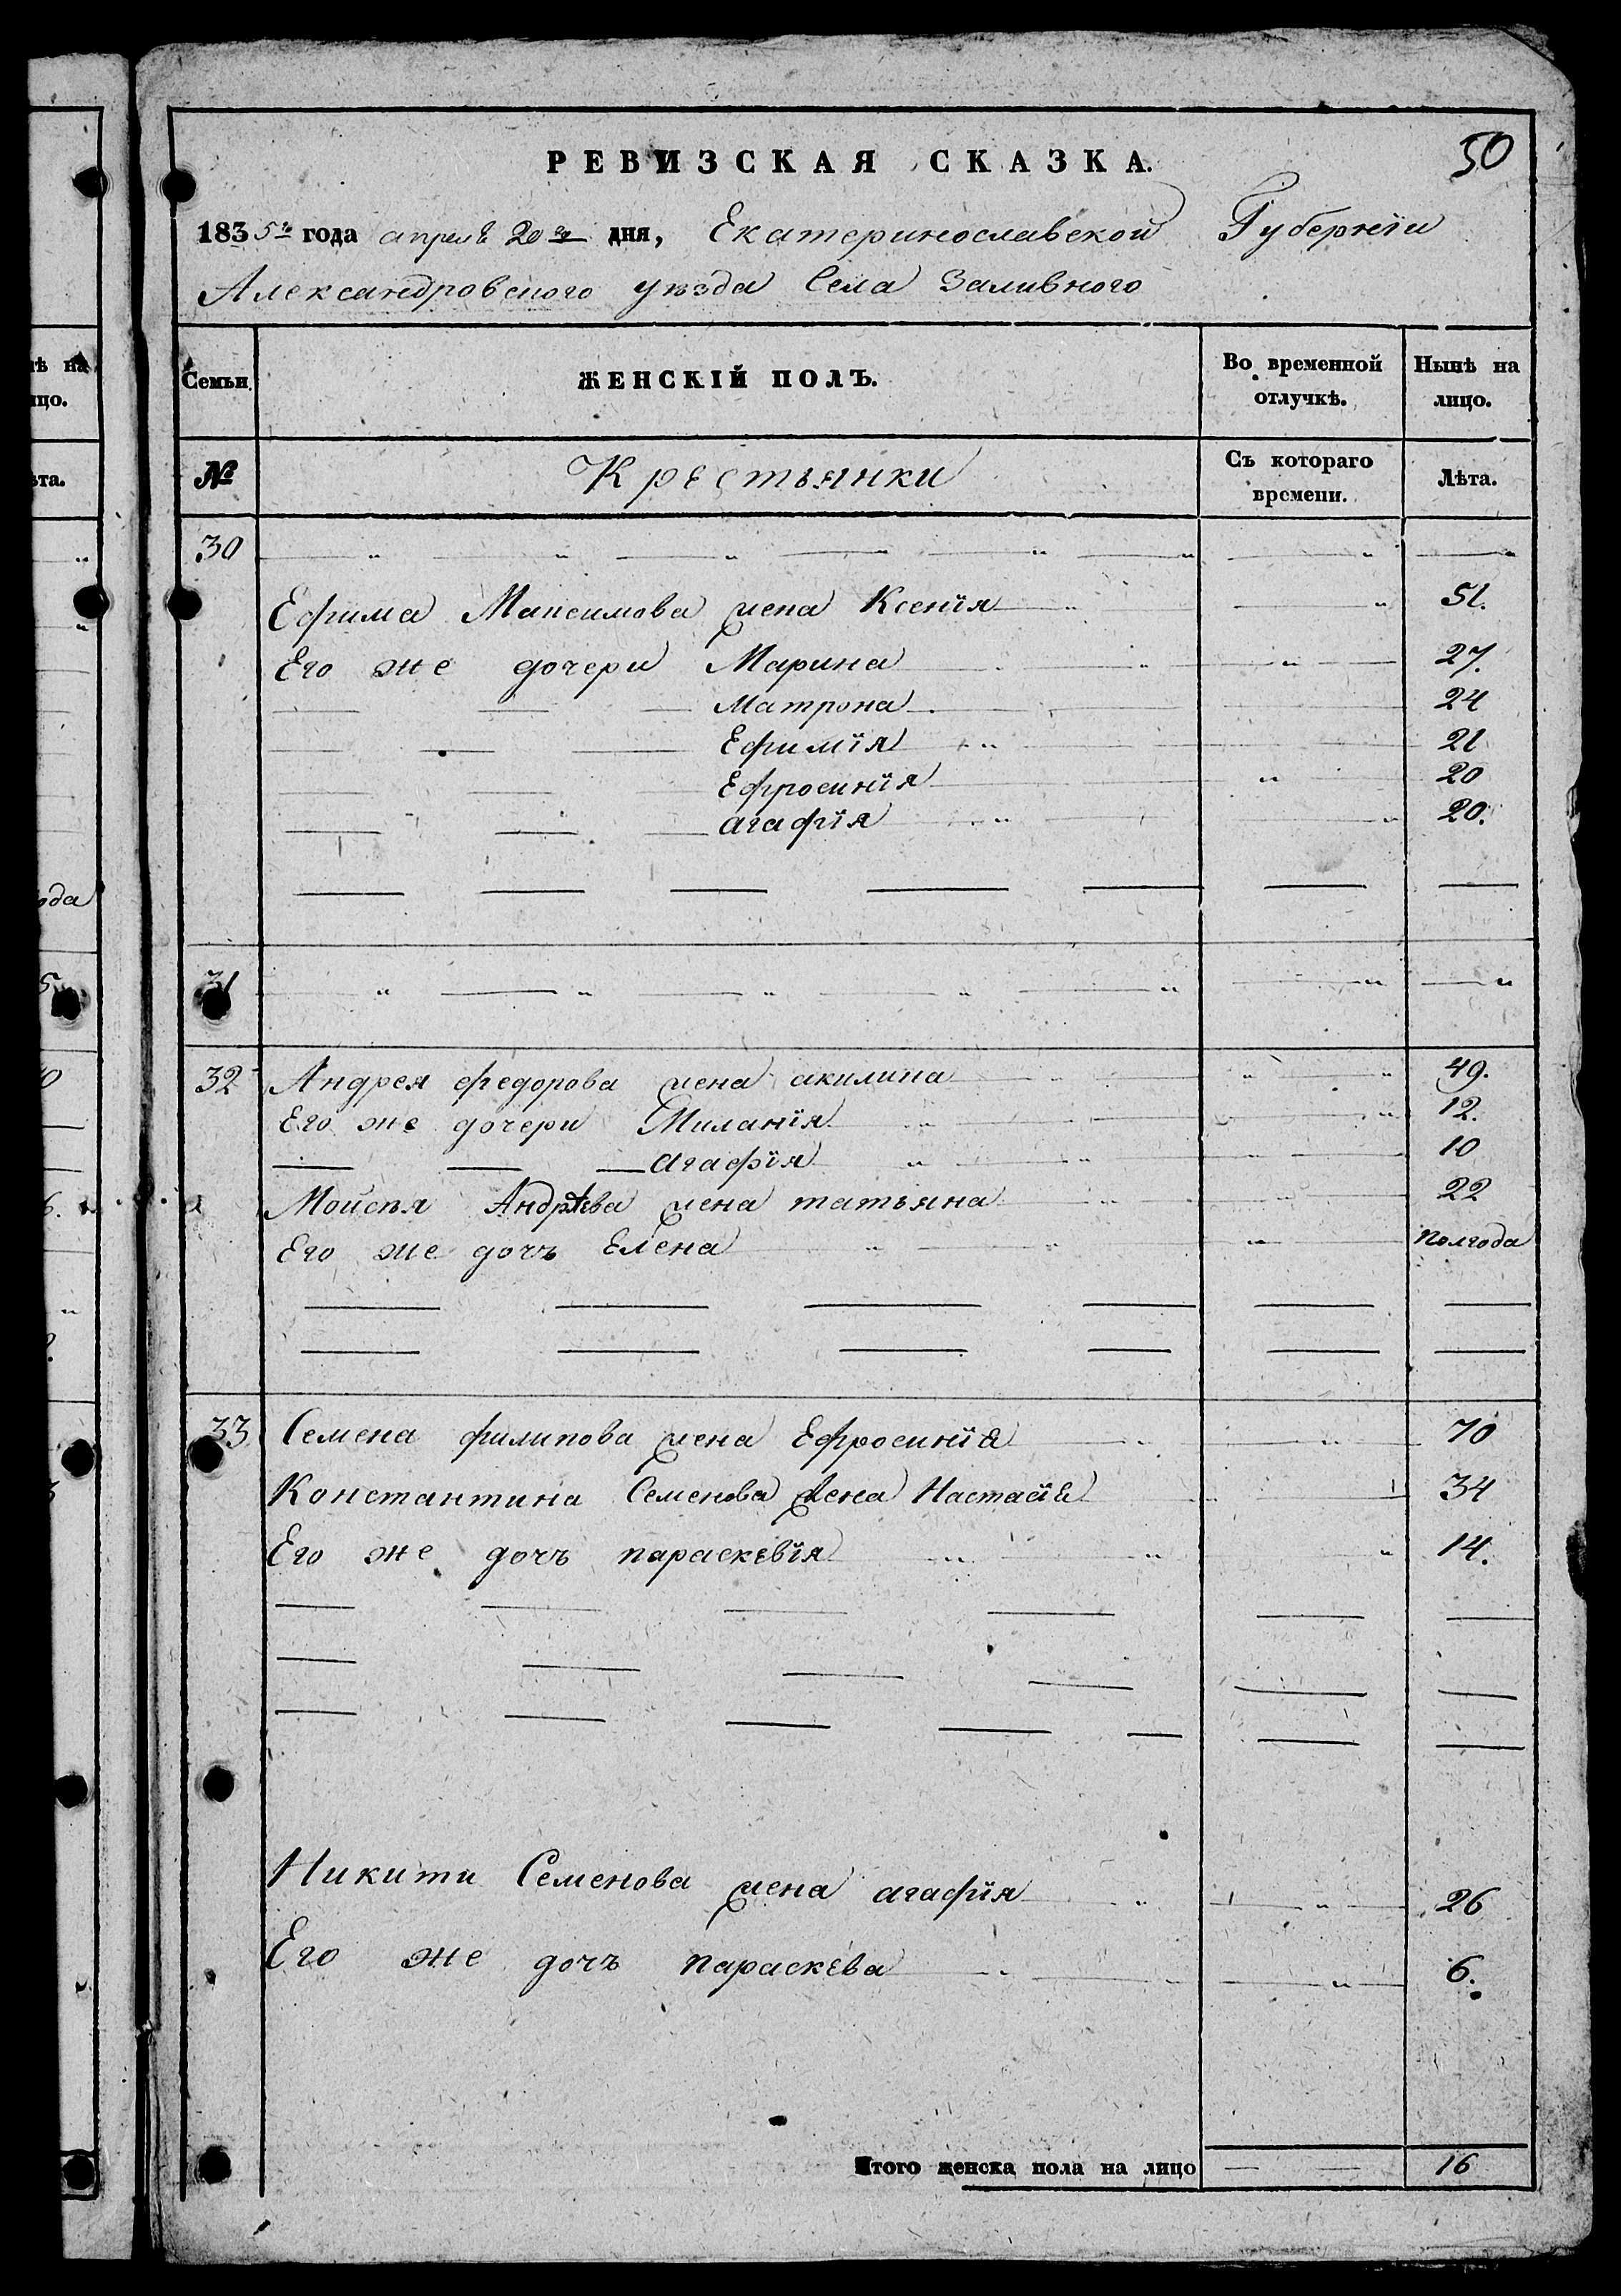 50
РЕВИЗСКАЯ СКАЗКА.
1835го года апреля 20го дня, Екатеринославской Губернїи
Александровского уезда Села Заливного
Семьи. ЖЕНСКІЙ ПОЛЪ. Во временной отлучкѣ. Нынѣ на лицо.
№ Крестьянки Съ котораго времени. Лѣта.
30
Ефима Максимова жена Ксенїя 51.
Его же дочери Марина 27.
Матрона 24
Ефимїя 21
Ефросинїя 20
агафїя 20.
31
32 Андрея федорова жена акилина 49.
Его же дочери Миланїя 12.
агафїя 10
Моисея Андреева жена татьяна 22
Его же дочь Елена полгода
33 Семена филипова жена Ефросинїя 70
Константина Семенова жена Настасїя 34
Его же дочь параскевїя 14.
Никити Семенова жена агафїя 26
Его же дочь параскева 6.
Итого женска пола на лицо 16